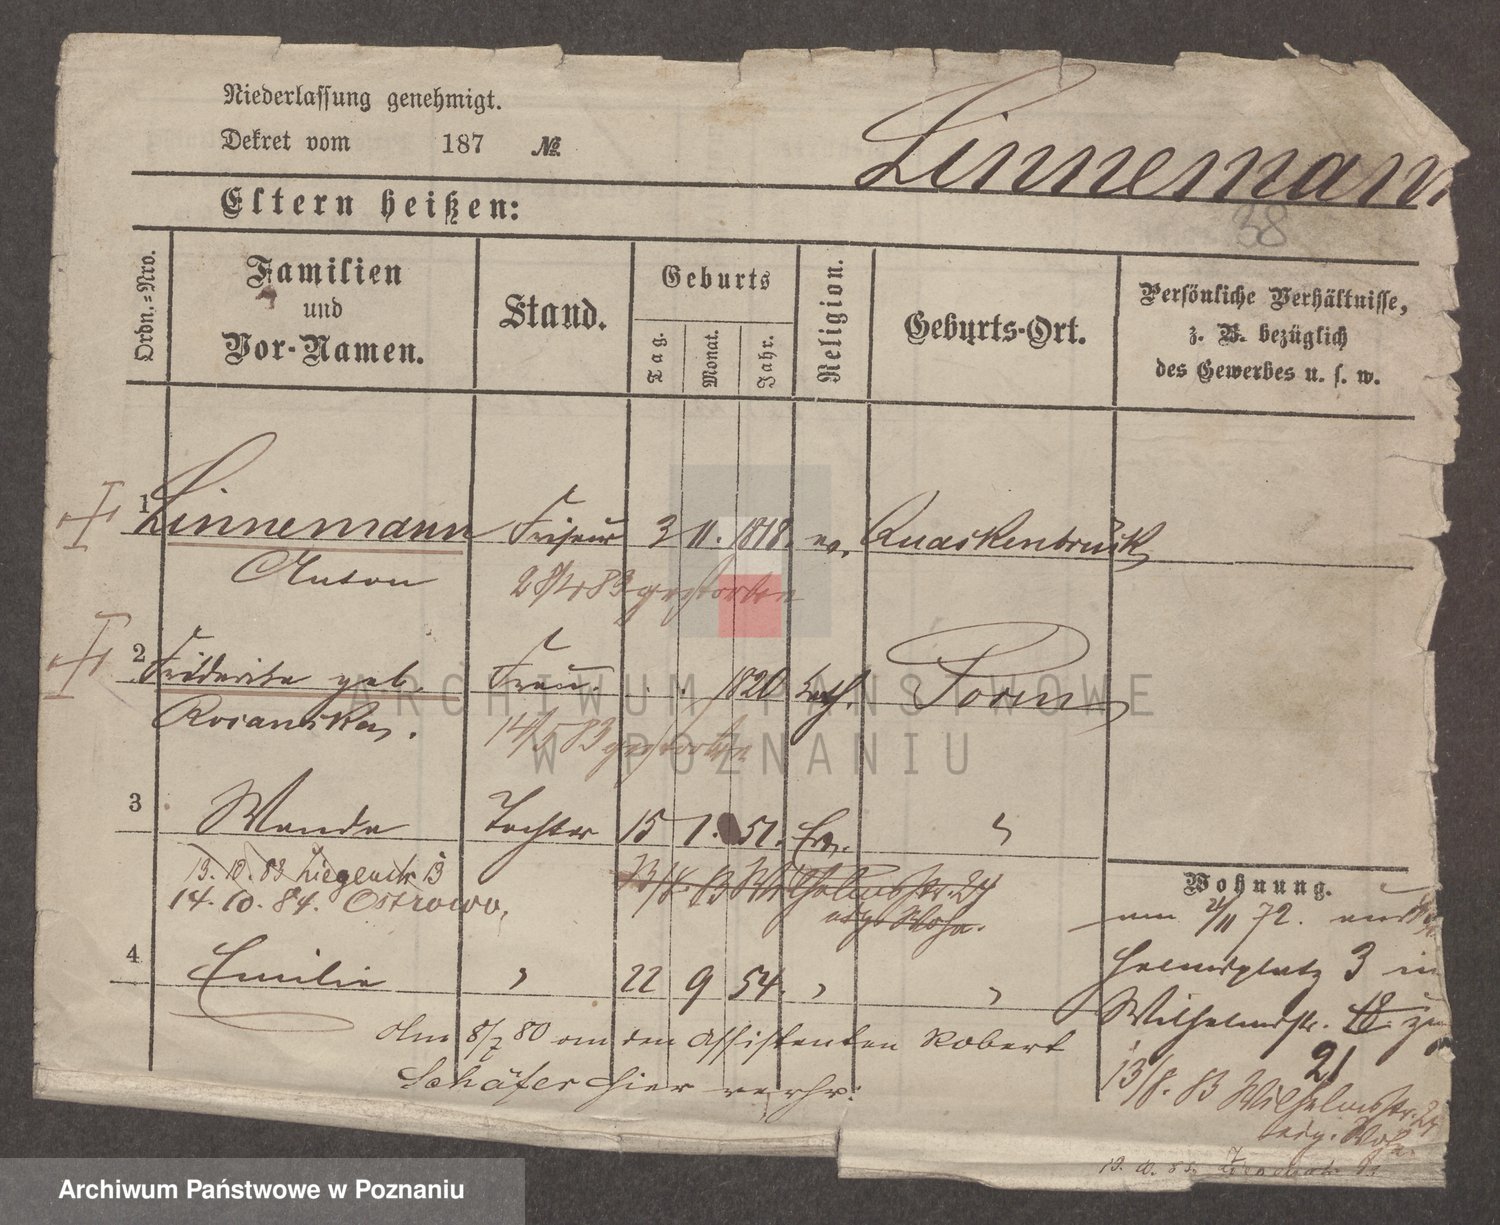 Niederlassung genehmigt.
Dekret vom 187 №
Linnemann
38
Eltern heißen:
Ordn.=Nro.
Familien
und
Vor-Namen.
Stand.
Geburts
Tag.
Monat.
Jahr.
Religion.
Geburts-Ort.
Persönliche Verhältnisse,
z. B. bezüglich
des Gewerbes u. s. w.
1 Linnemann Friseur 3 11. 1818. ev. Quackenbrück
Anton 83 gestorben
2 Friederike geb. Frau. 1820 kath. Posen
Rosanska. 14/5 83 gestorben
3 Wanda Tochter 15 1. 51. Ev. "
13. 10. 83 13
14. 10. 84. Ostrowo,
13/8. 83 Wilhelmsstr. 24
Wohnung.
72.
4 Emilie " 22 9 54. " "
3 in
Wilhelmstr. 18 zu
21
Am 8/7 80 an den Assistenten Robert
Schäfer hier verhr:
13/8. 83 Wilhelmsstr. 24
ARCHIWUM PAŃSTWOWE
W POZNANIU
Archiwum Państwowe w Poznaniu